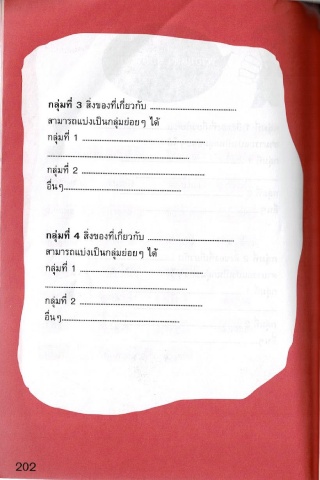 กลุ่มที่ 3 สิ่งของที่เกี่ยวกับ ..............................
สามารถแบ่งเป็นกลุ่มย่อยๆ ได้
กลุ่มที่ 1 ..........................................
................................................
กลุ่มที่ 2 ..........................................
อื่นๆ........................................
กลุ่มที่ 4 สิ่งของที่เกี่ยวกับ ..............................
สามารถแบ่งเป็นกลุ่มย่อยๆ ได้
กลุ่มที่ 1 ..........................................
................................................
กลุ่มที่ 2 ..........................................
อื่นๆ........................................
202